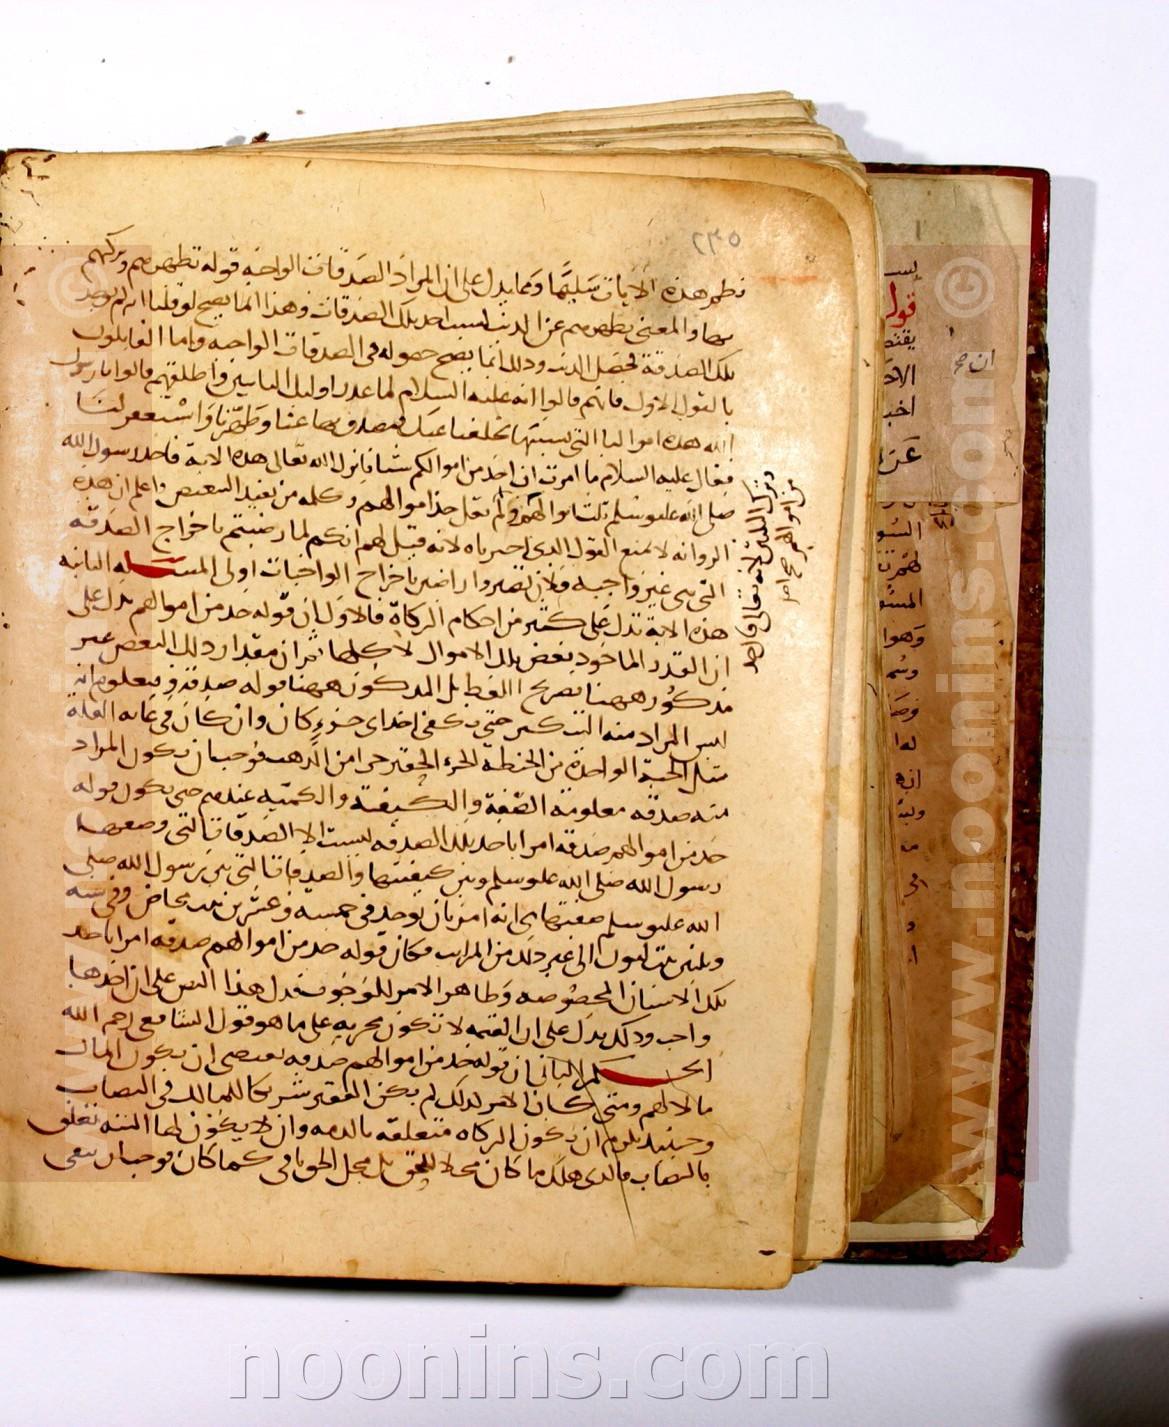 ٢٣٥
نظم هذه الآيات سليما ومما يدل على ان المراد الصدقات الواجبه قوله تطهرهم وتزكيهم
بها والمعنى تطهرهم عن الذنب بسبب اخذ تلك الصدقات وهذا انما يصح لو قلنا انه لو لم يوجد
تلك الصدقة لحصل الذنب وذلك انما يصح حصوله فى الصدقات الواجبه واما القايلون
بالقول الاول فانهم قالوا انه عليه السلام لما عذر اوليك التايبين واطلقهم قالوا يا رسول
الله هذه اموالنا التى بسببها تخلفنا عنك فتصدق بها عنا وطهرنا واستغفر لنا
فقال عليه السلام ما امرت ان اخذ من اموالكم شيا فانزل الله تعالى هذه الاية فاخذ رسول الله
صلى الله عليه وسلم ثلث اموالهم ولم يقل خذ اموالهم وكلمه من تفيد التبعيض واعلم ان هذه
الروايه لا تمنع القول الذى اخترناه لانه قيل لهم انكم لما رضيتم باخراج الصدقه
التى هى غير واجبه فلان تصيروا راضين باخراج الواجبات اولى المسـله الثانيه
هذه الاية تدل على كثير من احكام الزكاة فالاول ان قوله خذ من اموالهم يدل على
ان القدر الماخوذ بعض تلك الاموال لا كلها ثم ان مقدار ذلك البعض غير
مذكور ههنا بصريح اللفظ بل المذكور ههنا قوله صدقة ومعلوم انه
ليس المراد منه التنكير حتى يكفى اخذ اى جزء كان وان كان فى غايه القلة
مثل الحبة الواحدة من الحنطة الجزء الحقير جدا من الذهب فوجب ان يكون المراد
منه صدقه معلومة الصفة والكيفية والكمية عندهم حتى يكون قوله
خذ من اموالهم صدقه امرا باخذ تلك الصدقه ليست الا الصدقات التى وصفها
رسول الله صلى الله عليه وسلم وبين كيفيتها والصدقات التى بين رسول الله صلى
الله عليه وسلم صفتها هى انه امر بان توخذ فى خمسه وعشرين بنت مخاض وفى سته
وثلثين بنت لبون الى غير ذلك من المراتب فكان قوله خذ من اموالهم صدقه امرا باخذ
تلك الاسنان المخصوصه وظاهر الامر للوجوب فدل هذا النص على ان اخذها
واجب وذلك يدل على ان القيمه لا تكون مجزيه على ما هو قول الشافعى رحمه الله
الحكم الثانى ان قوله خذ من اموالهم صدقه يقتضى ان يكون المال
مالا لهم ومتى كان الامر كذلك لم يكن الفقير شريكا للمالك فى النصاب
وحينيذ يلزم ان تكون الزكاه متعلقه بالذمه وان لا يكون لها البته تعلق
بالنصاب فالذى هلك ما كان محلا للحق بل محل الحق باقى كما كان فوجب ان يبقى
وترك الثلثين لانه تعالى قال خذ
من اموالهم
ان صح
قول
عن
وهوا
www.noonins.com
noonins.com